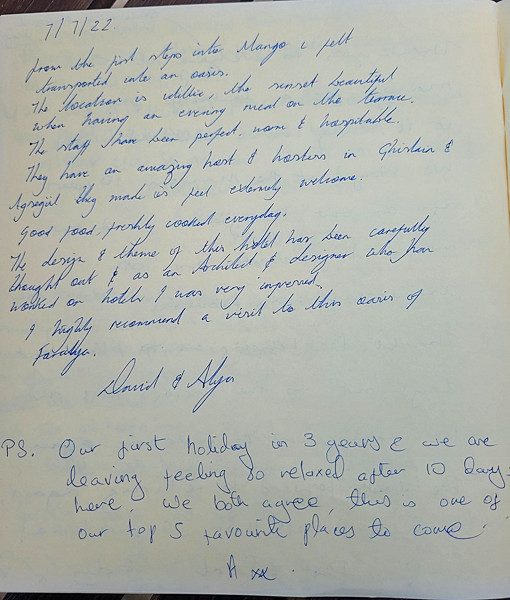 7/7/22
from the first steps into Mango i felt
transported into an oasis.
The location is idillic, the sunset beautiful
when having an evening meal on the terrace.
The staff have been perfect, warm & hospitable.
They have an amazing host & hostess in Ghislain &
they made us feel extremely welcome.
Good food, freshly cooked everyday.
The design & theme of this hotel has been carefully
thought out & as an Architect & designer who has
worked on hotels I was very impressed.
I highly recommend a visit to this oasis of
David & Alya
PS. Our first holiday in 3 years & we are
leaving feeling so relaxed after 10 days
here. We both agree, this is one of
our top 5 favourite places to come.
A xx